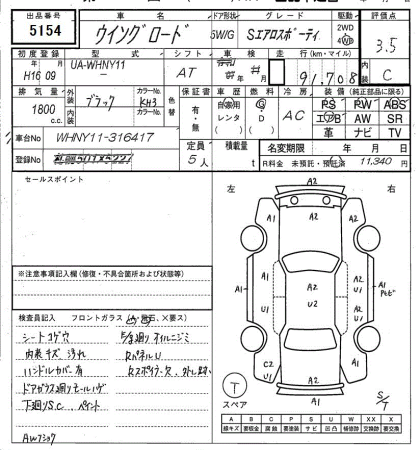 出品番号 車名 ドア形状 グレード 駆動 評価点
5154 ウイングロード 5W/G Sエアロスポーティ 2WD 4WD 3.5
初度登録 型式 シフト 車検 走行(km・マイル) 内装
H16 09 UA-WHNY11 - AT 91,708 C
排気量 外装 ブラック カラーNo. KH3 色替 保証書 車歴 燃料 冷房 装備(純正部品に限る)
1800 c.c. 内装 カラーNo. 有・無 自家用 レンタ G・D AC PS PW ABS
エアB AW SR
革 ナビ TV
車台No WHNY11-316417 定員 積載量 名変期限 年 月 日
登録No 5人 t R料金 未預託・預託済 11,340 円
セールスポイント
左 右
A2
A1 A2 A1
A1 A2 U1 U2 A1 A1
U1 A1 U1
C2 U1 A1
A2
A2
※注意事項記入欄(修復・不具合箇所および状態等)
検査員記入 フロントガラス(A、飛石、×要ス)
シートコゲ穴
内装キズ汚れ RパネルU
ハンドルカバー有
ドアガラス廻りモールハゲ
下廻りS.C. ペイント
スペア T S/T
A B C P S U W X XX
線キズ 要板金 腐蝕 要塗装 サビ 凹凸 補修跡 要交換 交換